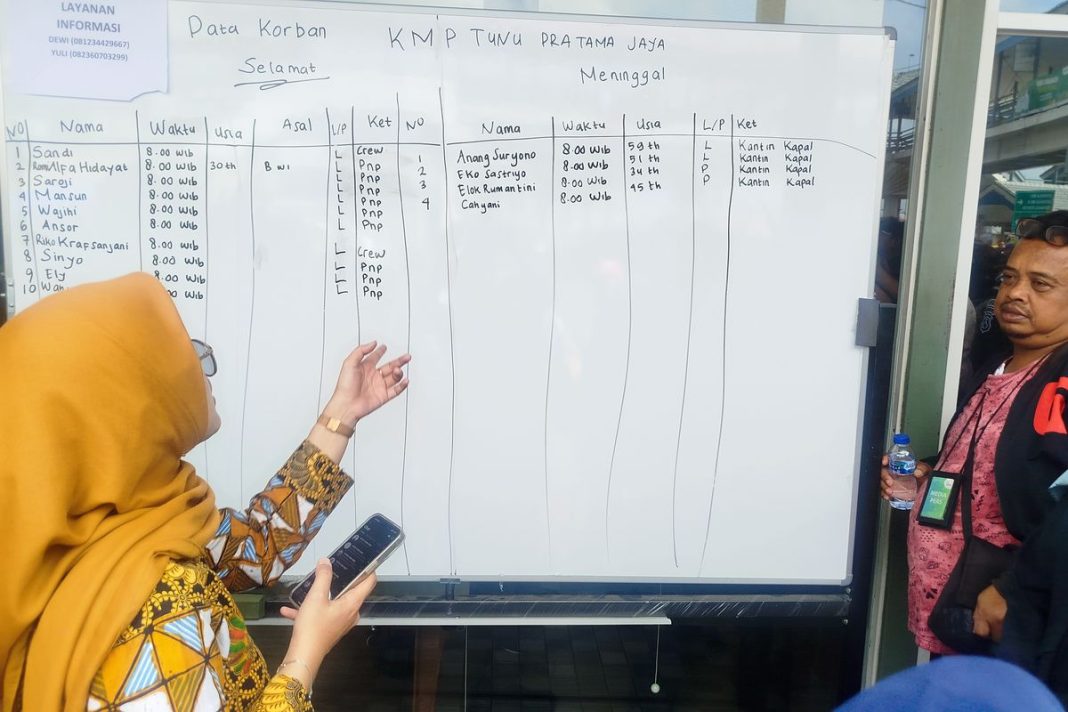 LAYANAN
INFORMASI
DEWI (081234429667)
YULI (082360703299)
Data Korban KMP TUNU PRATAMA JAYA
Selamat
Meninggal
NO Nama Waktu Usia Asal L/P Ket
1 Sandi 8.00 Wib L Crew
2 Romi Alfa Hidayat 8.00 Wib 30 th Bwi L Pnp
3 Saroji 8.00 Wib L Pnp
4 Mansun 8.00 Wib L Pnp
5 Wajihi 8.00 Wib L Pnp
6 Ansor 8.00 Wib L Pnp
7 Riko Krafsanjani 8.00 Wib L Crew
8 Sinyo 8.00 Wib L Pnp
9 Ely 8.00 Wib L Pnp
10 8.00 Wib L Pnp
NO Nama Waktu Usia L/P Ket
1 Anang Suryono 8.00 Wib 59 th L Kantin Kapal
2 Eko Sastriyo 8.00 Wib 51 th L Kantin Kapal
3 Elok Rumantini 8.00 Wib 34 th P Kantin Kapal
4 Cahyani 8.00 Wib 45 th P
MEDIA
PERS